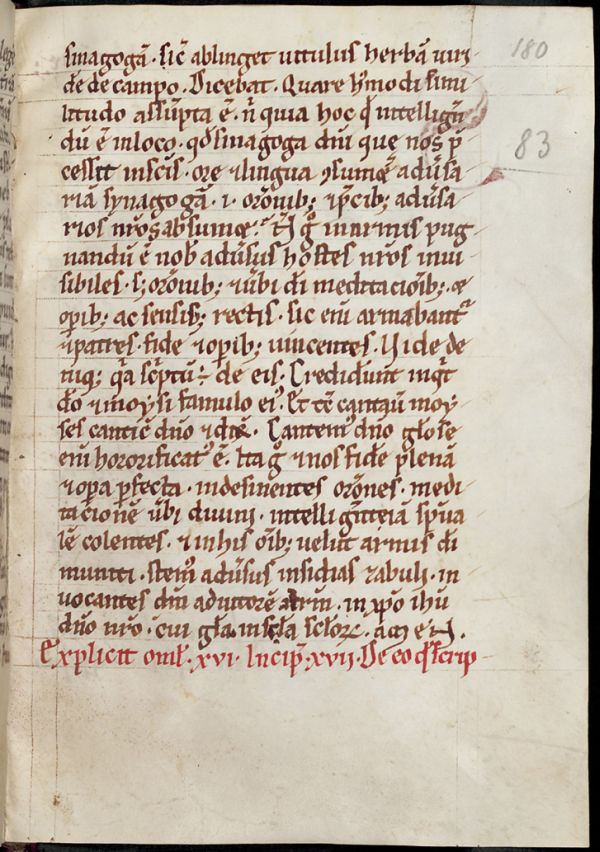 sinagogā. sic̄ ablinget uitulus herbā uiri
dē de campo. Dicebat. Quare hͥmodi simi
litudo assūpta ē. n̄ quia hoc qͥ intellign̄
dū ē in loco. qđ sinagoga dm̄ que nos p̄
cessit in scīs. ore ⁊ lingua ɔsumeͣ aduͥsa
riā synagogā. i. orōnib; ⁊ p̄cib; aduͥsa
rios nr̄os absumeͣ. in armis pug
nandū ē nob̄ aduͥsus hostes nr̄os inui
sibiles. s; orōnib; ⁊ uͥbi dī meditaciōīb; ⁊
oꝑib; ac sensib; rectis. sic enī armabantͬ
⁊ patres. fide ⁊ oꝑib; uincentes. Uide de
niq; qͣ scͥptū ÷ de eis. Crediderunt inqͥt
dō ⁊ moysi famulo eiꝰ. Et tē cantauͥ moy
ses canticū dn̄o ⁊ dix̄. Cantemꝰ dn̄o glōse
enī honorificatꝰ ē. Ita gͦ ⁊ nos fide plenā
⁊ oꝑa ꝑfecta. indesinentes orōnes. medi
tacionē uͥbi diuini. intellign̄teiā sp̄ua
lē colentes. ⁊ in his oīb; uelut armis di
muniti. stemꝰ aduͥsus insidias zabuli. in
uocantes dm̄ adiutorē nr̄m. in xp̄o ih̄u
dn̄o nr̄o. cui glā in scl̄a scl̄oꝝ. amen.
Explicit omͥl. xvi. Incip̄. xvii. De eo qđ scrip
180
83